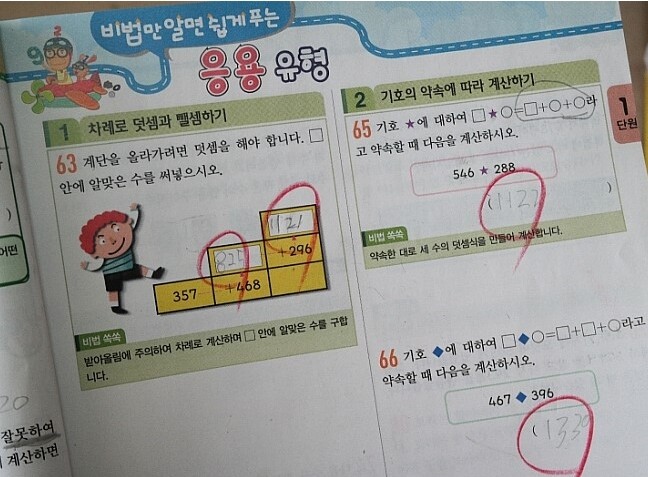 비법만 알면 쉽게 푸는
응용 유형
1 차례로 덧셈과 뺄셈하기
63 계단을 올라가려면 덧셈을 해야 합니다. □
안에 알맞은 수를 써넣으시오.
1121
825
+296
357
+468
비법 쏙쏙
받아올림에 주의하여 차례로 계산하며 □ 안에 알맞은 수를 구합
니다.
20
잘못하여
계산하면
어떤
2 기호의 약속에 따라 계산하기
65 기호 ★에 대하여 □★○=□+○+○라
고 약속할 때 다음을 계산하시오.
546 ★ 288
(1122)
비법 쏙쏙
약속한 대로 세 수의 덧셈식을 만들어 계산합니다.
66 기호 ◆에 대하여 □◆○=□+□+○라고
약속할 때 다음을 계산하시오.
467 ◆ 396
(1330
1
단원